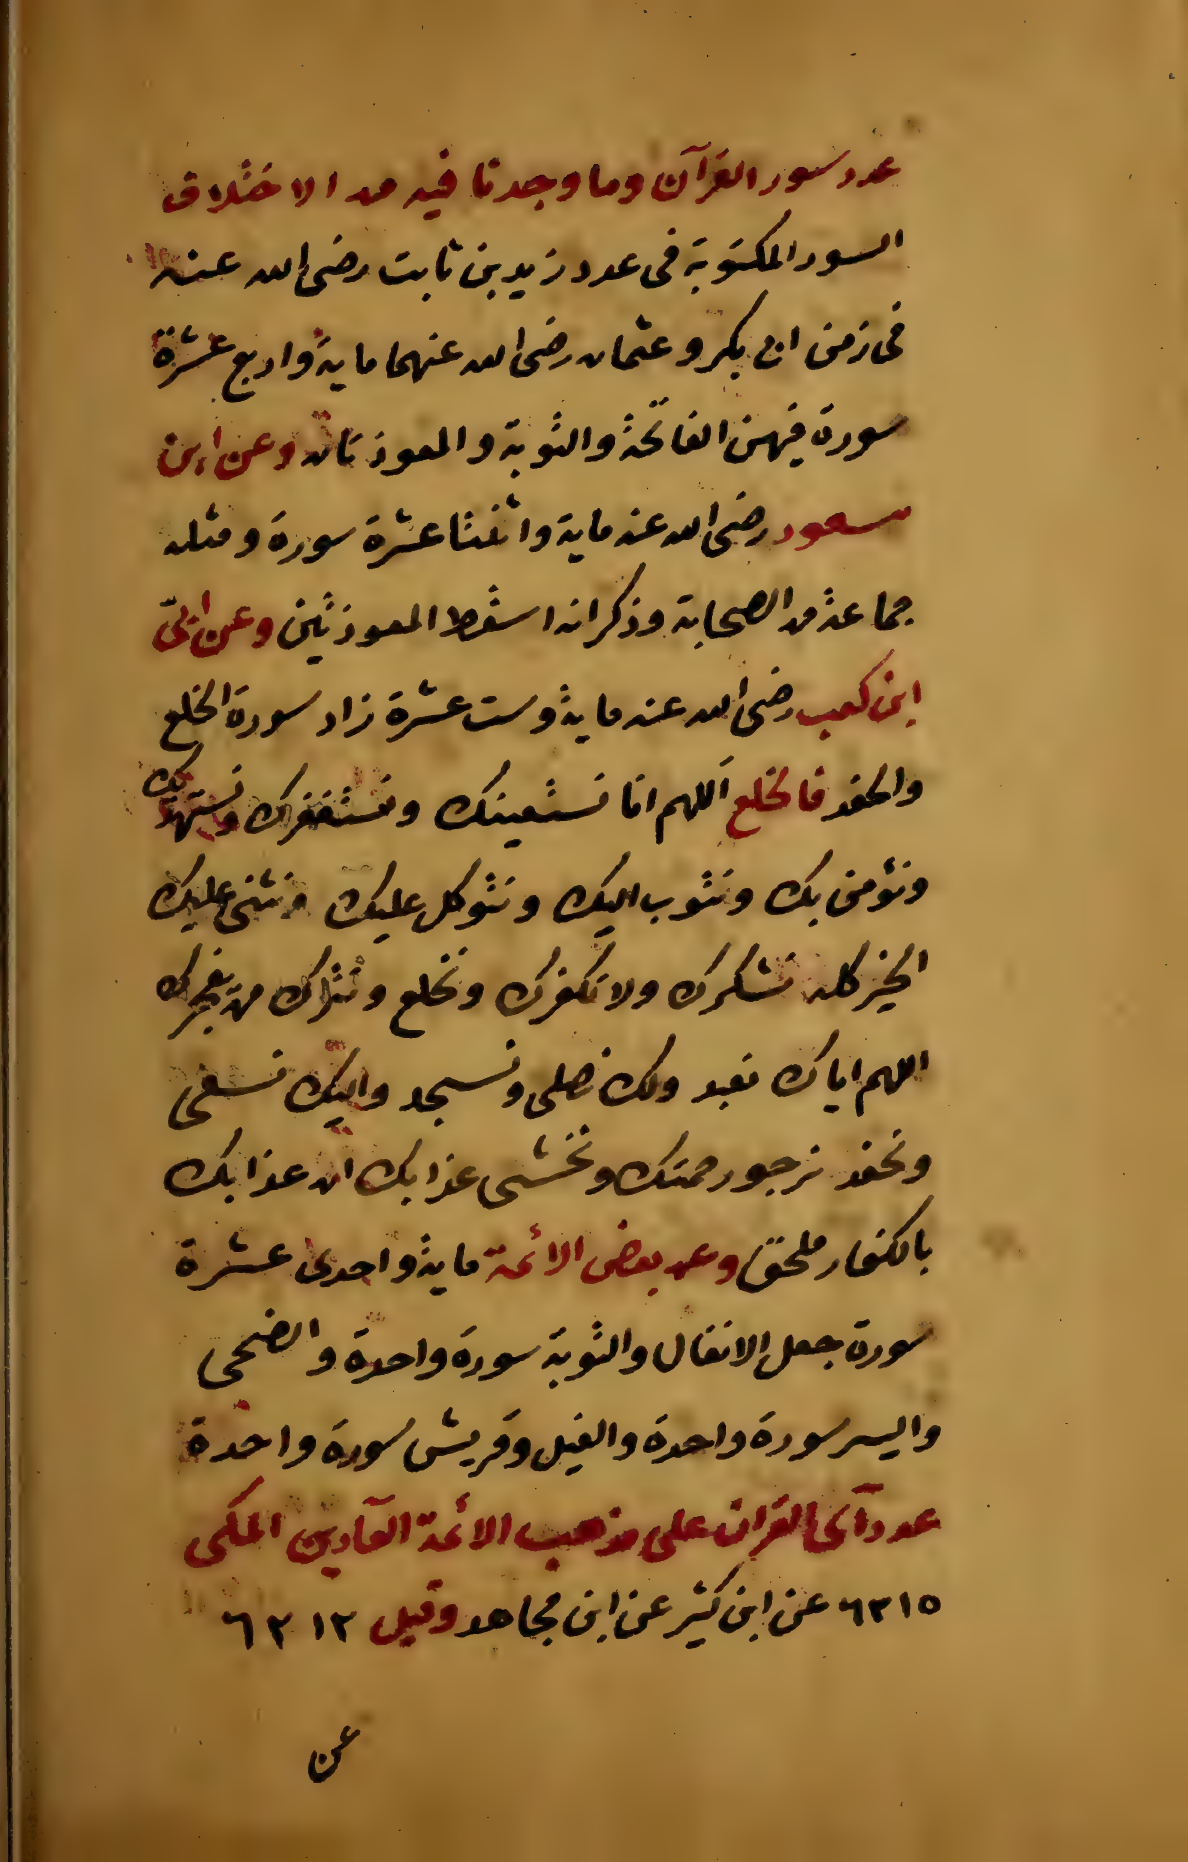 عدد سور القرآن وما وجدنا فيه من الاختلاق
السور المكتوبة فى عدد زيد بن ثابت رضى الله عنه
فى زمن ابى بكر وعثمان رضى الله عنهما ماية واربع عشرة
سورة فيهن الفاتحة والتوبة والمعوذتان وعن ابن
مسعود رضى الله عنه ماية واثنتا عشرة سورة ومثله
جماعة من الصحابة وذكر انه اسقط المعوذتين وعن ابىّ
ابن كعب رضى الله عنه ماية وست عشرة زاد سورة الخلع
والحفد فالخلع اللهم انا نستعينك ونستغفرك ونستهديك
ونؤمن بك ونتوب اليك ونتوكل عليك ونثنى عليك
الخير كله نشكرك ولا نكفرك ونخلع ونترك من يفجرك
اللهم اياك نعبد ولك نصلى ونسجد واليك نسعى
ونحفد نرجو رحمتك ونخشى عذابك ان عذابك
بالكفار ملحق وعد بعض الائمة ماية واحدى عشرة
سورة جعل الانفال والتوبة سورة واحدة والضحى
واليسر سورة واحدة والفيل وقريش سورة واحدة
عدد آى القران على مذهب الائمة العآدين المكى
٦٢١٥ عن ابن كثير عن ابن مجاهد وقيل ٦٢١٢
عن